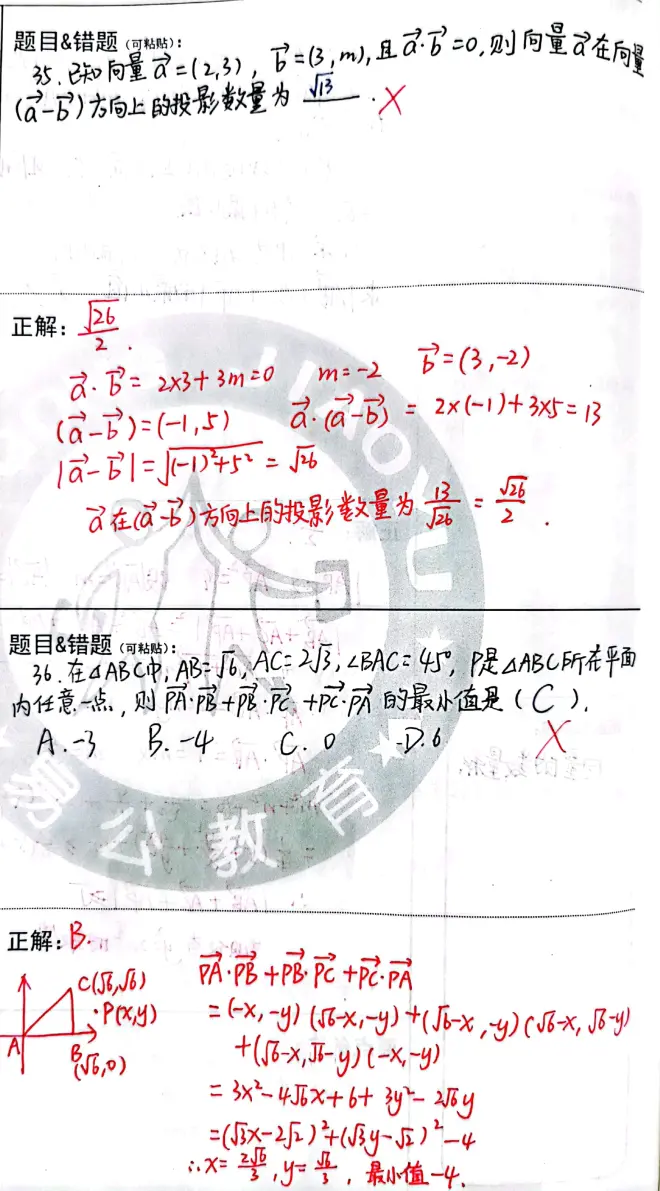 题目&错题（可粘贴）：
35. 已知向量 a⃗=(2,3), b⃗=(3,m), 且 a⃗·b⃗=0, 则向量 a⃗ 在向量
(a⃗-b⃗) 方向上的投影数量为 √13 . ×
正解：√26/2 .
a⃗·b⃗=2×3+3m=0 m=-2 b⃗=(3,-2)
(a⃗-b⃗)=(-1,5) a⃗·(a⃗-b⃗)=2×(-1)+3×5=13
|a⃗-b⃗|=√((-1)²+5²)=√26
a⃗在(a⃗-b⃗)方向上的投影数量为 13/√26=√26/2 .
题目&错题（可粘贴）：
36. 在△ABC中, AB=√6, AC=2√3, ∠BAC=45°, P是△ABC所在平面
内任意一点, 则 PA⃗·PB⃗+PB⃗·PC⃗+PC⃗·PA⃗ 的最小值是( C ).
A. -3 B. -4 C. 0 D. 6 ×
易公教育
YIGONG JIAOYU
正解：B.
C(√6,√6)
·P(x,y)
A
B
(√6,0)
PA⃗·PB⃗+PB⃗·PC⃗+PC⃗·PA⃗
=(-x,-y)(√6-x,-y)+(√6-x,-y)(√6-x,√6-y)
+(√6-x,√6-y)(-x,-y)
=3x²-4√6x+6+3y²-2√6y
=(√3x-2√2)²+(√3y-√2)²-4
∴x=2√6/3, y=√6/3, 最小值-4.